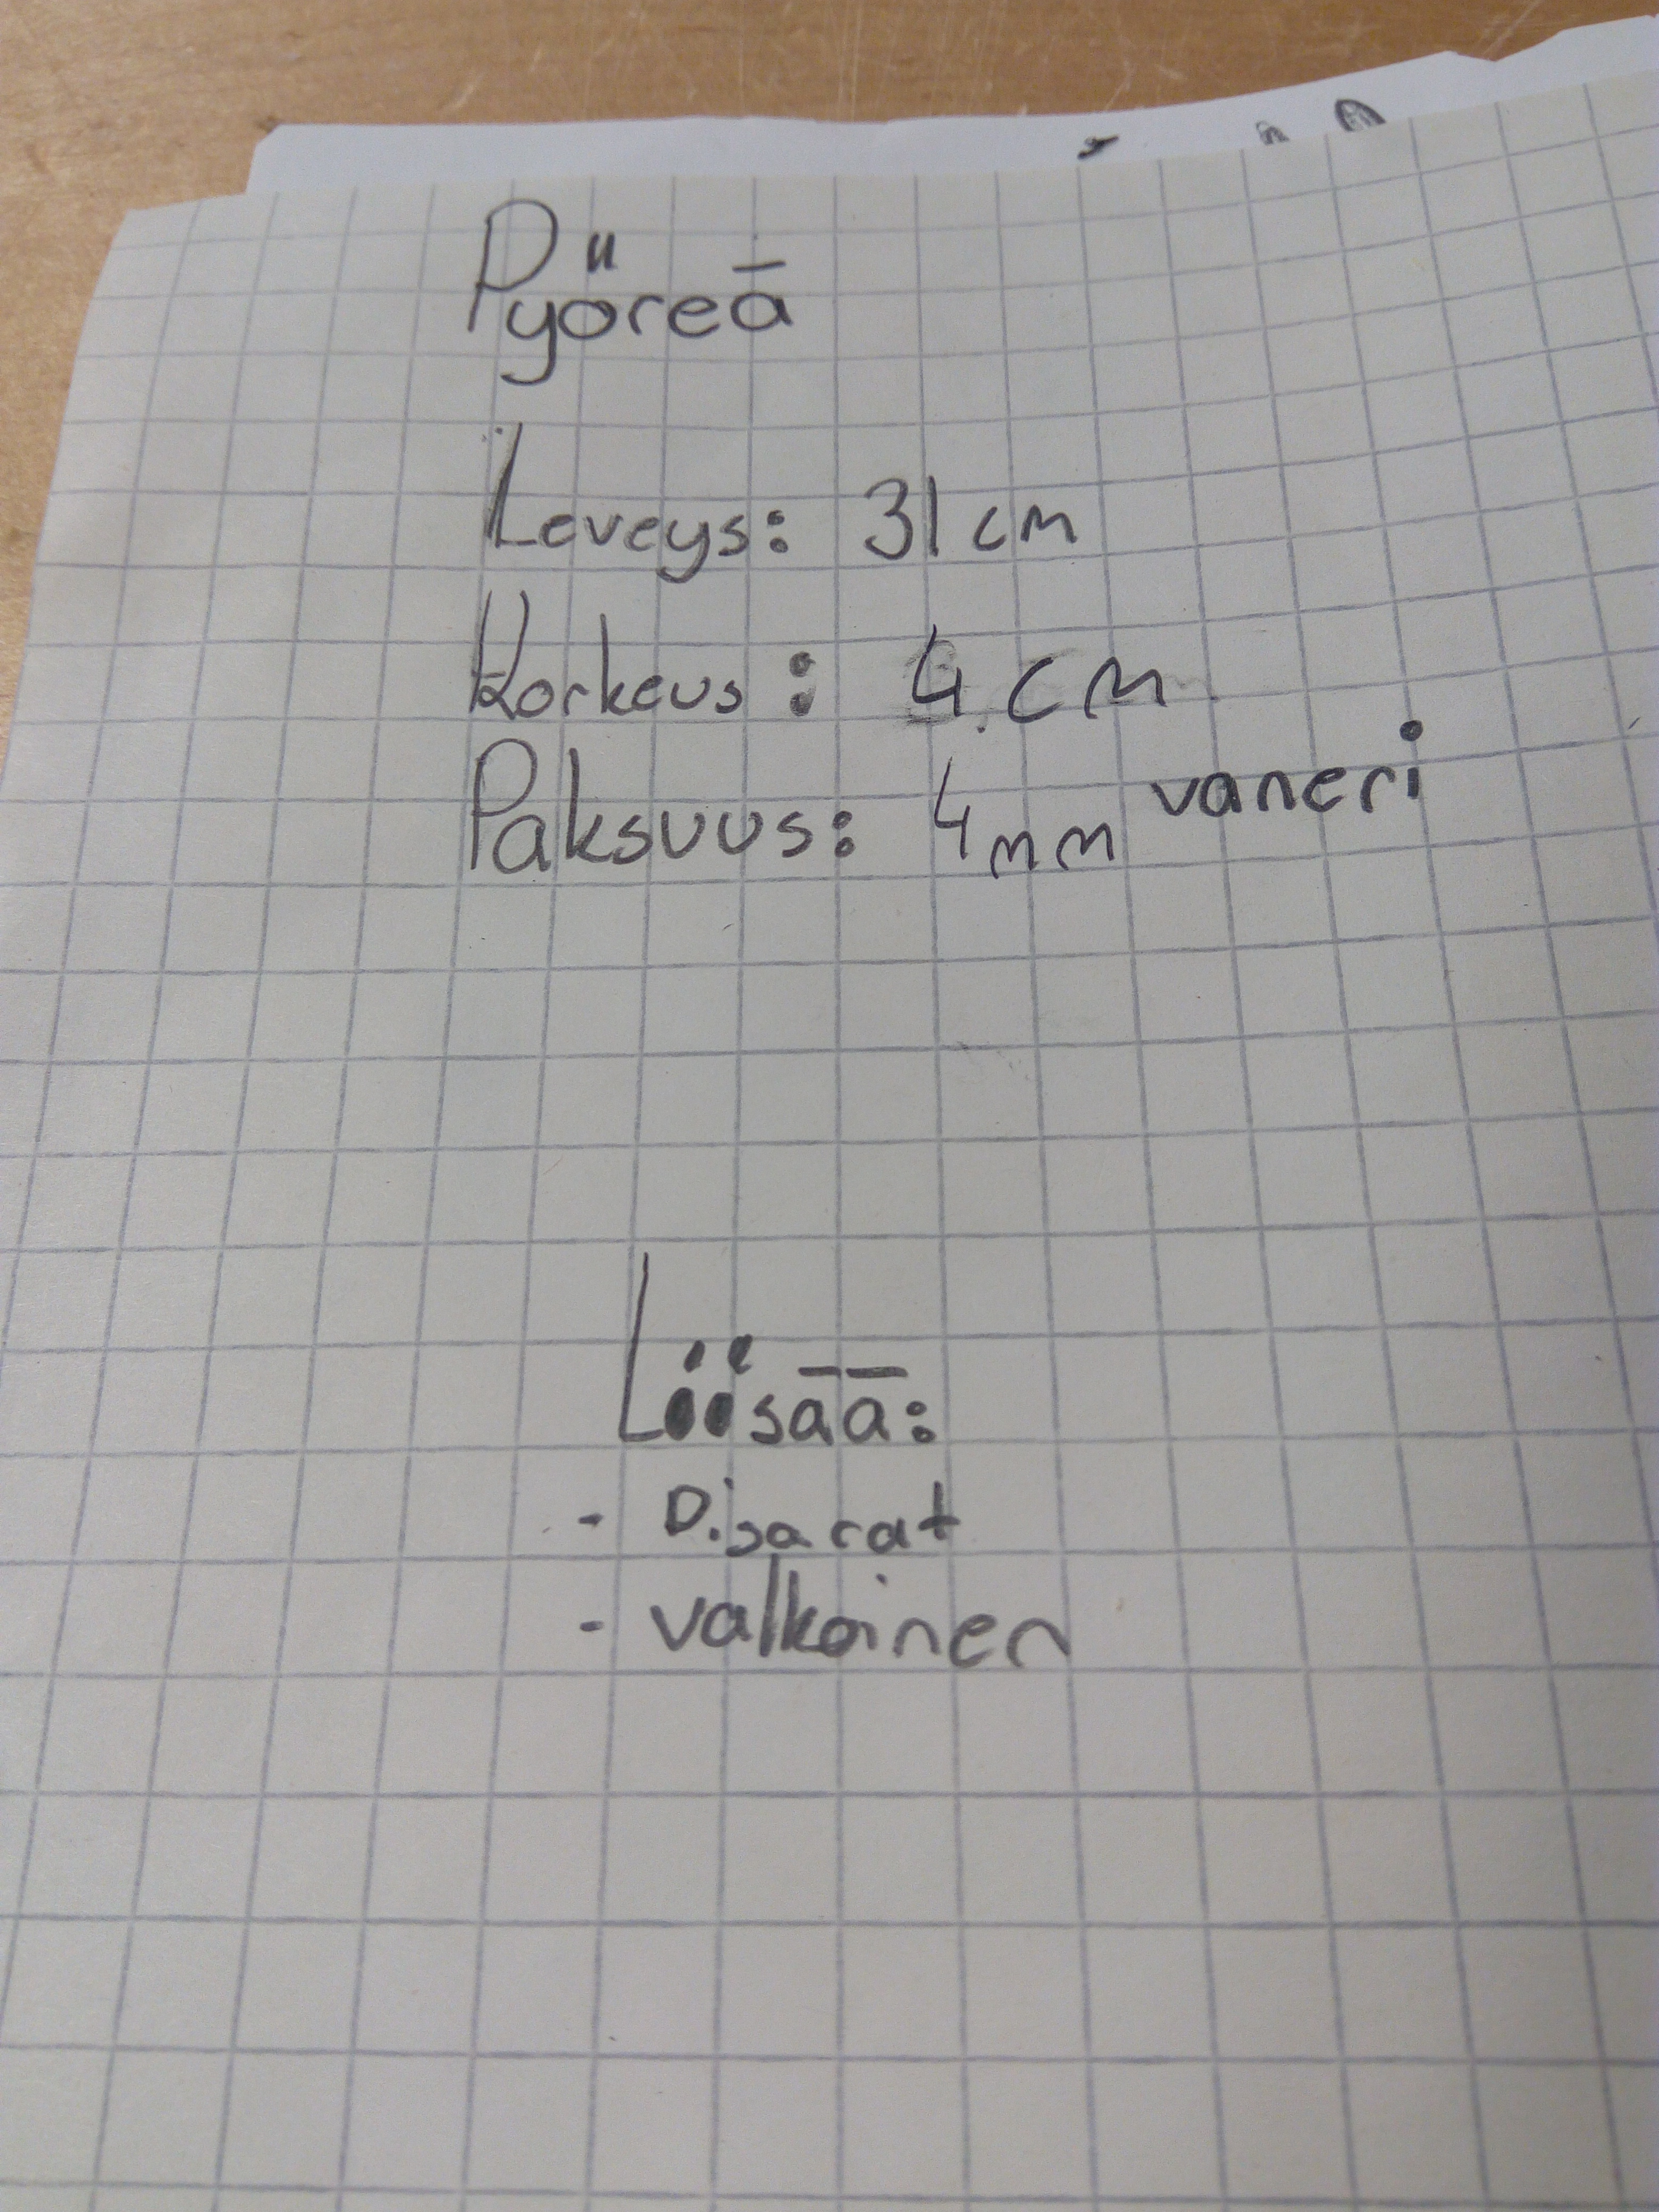 Pyöreä
Leveys: 31 cm
Korkeus: 4 cm
Paksuus: 4mm vaneri
Liisää:
- Disarat
- valkoinen